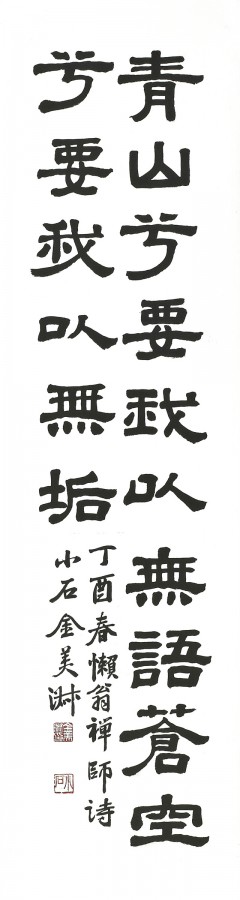 青山兮要我以無語蒼空
兮要我以無垢
丁酉春懶翁禅師詩
小石金美淋